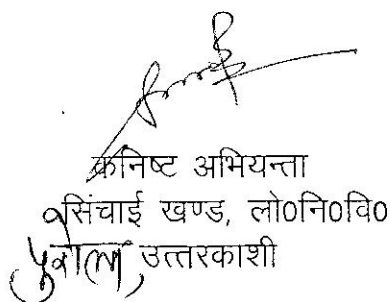 कनिष्ट अभियन्ता
सिंचाई खण्ड, लो०नि०वि०
पुरोला, उत्तरकाशी